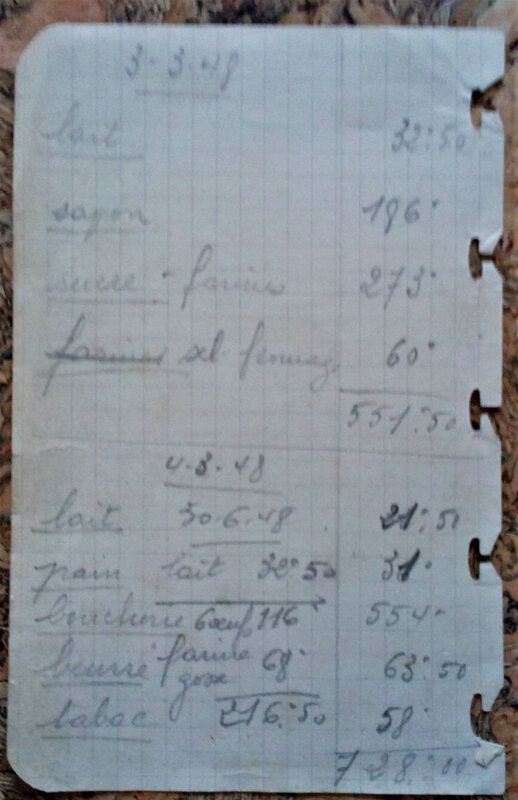 3-3-48
lait 32.50
savon 186.
sucre - farine 273.
farine sel fromag 60.
551.50
4-3-48
lait 30-6-48 21.50
pain lait 32.50 31.
boucherie 6 œufs 116 554.
beurre farine 68. 63.50
tabac 216.50 58.
728.00